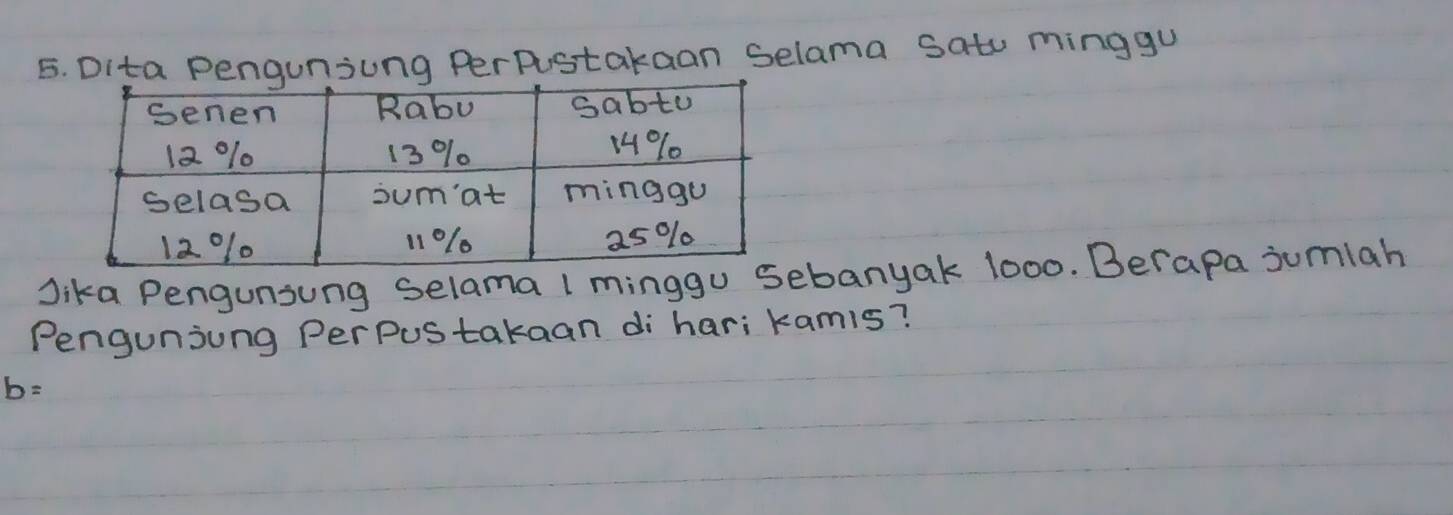 5. Dita Pengunjung Perpustakaan Selama Satu minggu
Senen Rabu Sabtu
12% 13% 14%
Selasa jum'at minggu
12% 11% 25%
Jika Pengunjung Selama 1 minggu Sebanyak 1000. Berapa jumlah
Pengunjung Perpustakaan di hari kamis?
b=